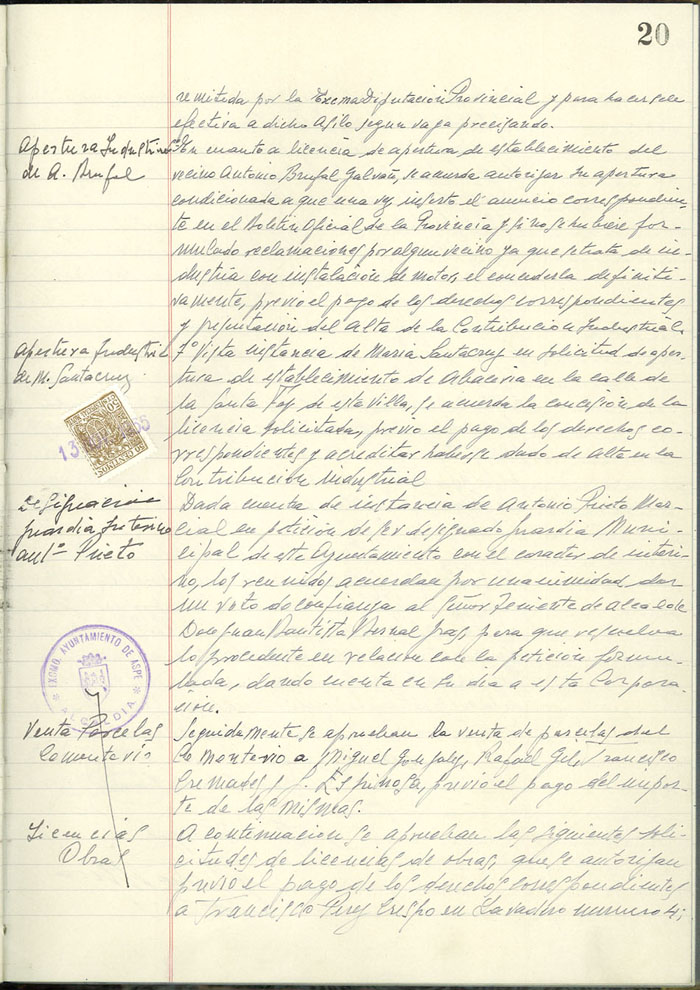 20
remitida por la Excma Diputación Provincial y para hacerse
efectiva a dicho Asilo segun vaya precisando.
Apertura Industria
de A. Brufal
En cuanto a licencia de apertura de establecimiento del
vecino Antonio Brufal Galvañ, se acuerda autorizar su apertura
condicionada a que una vez inserto el anuncio correspondien-
te en el Boletin Oficial de la Provincia y si no se hubiere for-
mulado reclamaciones por algun vecino ya que se trata de in-
dustria con instalación de motor, el concederla definiti-
vamente, previo el pago de los derechos correspondientes
y presentación del Alta de la Contribución Industrial.
Apertura Industria
de M. Santacruz
7º Vista instancia de Maria Santacruz en solicitud de aper-
tura de establecimiento de Abaceria en la calle de
la Santa Faz de esta Villa, se acuerda la concesión de la
licencia solicitada, previo el pago de los derechos co-
rrespondientes y acreditar haberse dado de Alta en la
Contribución industrial
50 CENTIMOS
Designación
guardia Interino
antº Prieto
Dada cuenta de instancia de Antonio Prieto Mar-
cial en petición de ser designado guardia Muni-
cipal de este Ayuntamiento con el caracter de interi-
no, los reunidos acuerdan por unanimidad dar
un voto de confianza al Señor Teniente de alcalde
Don Juan Bautista Bernal para que resuelva
lo procedente en relación con la petición formu-
lada, dando cuenta en su dia a esta Corpora-
ción.
EXCMO. AYUNTAMIENTO DE ASPE
ALCALDIA
Venta Parcelas
Cementerio
Seguidamente se aprueban la venta de parcelas del
Cementerio a Miguel Gonzalez, Rafael Gil, Francisco
Cremades y J. Espinosa, previo el pago del impor-
te de las mismas.
Licencias
Obras
A continuación se aprueban las siguientes soli-
citudes de licencias de obras, que se autorizan
previo el pago de los derechos correspondientes
a Francisco Perez Crespo en Lavadero numero 4;